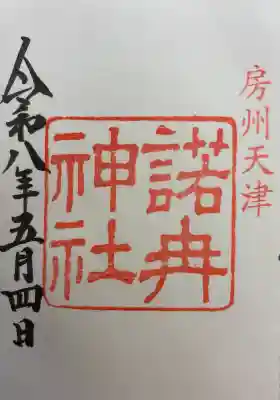 房州天津
諾冉
神社
令和八年五月四日